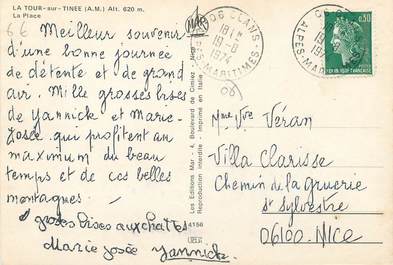 LA TOUR-sur-TINEE (A.M.) Alt. 620 m.
La Place
66 Meilleur souvenir
d'une bonne journée
de détente et de grand
air. Mille grosses bises
de Yannick et Marie-
Josée qui profitent au
maximum du beau
temps et de ces belles
montagnes.
grosses bises aux chattes
Marie Josée Yannick
Les Editions Mar - 4, Boulevard de Cimiez - Nice
Reproduction interdite - Imprimé en Italie
4156
06 CLANS
18H
19-8
1974
ALPES-MARITIMES
06
0,30
REPUBLIQUE FRANCAISE
Mme Vve Véran
Villa Clarisse
Chemin de la gruerie
St Sylvestre
06100 NICE